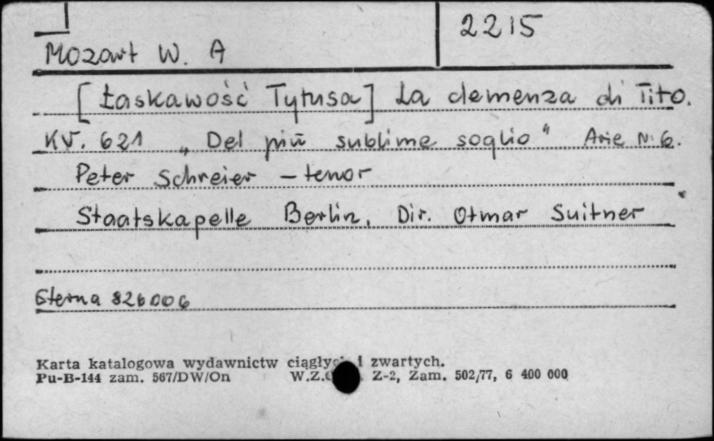 2215
Mozart W. A
[Łaskawość Tytusa] La clemenza di Tito.
KV. 621 „Del più sublime soglio" Arie N. 6.
Peter Schreier – tenor
Staatskapelle Berlin, Dir. Otmar Suitner
Eterna 826006
Karta katalogowa wydawnictw i zwartych.
Pu-B-144 zam. 567/DW/On Z-2, Zam. 502/77, 6 400 000